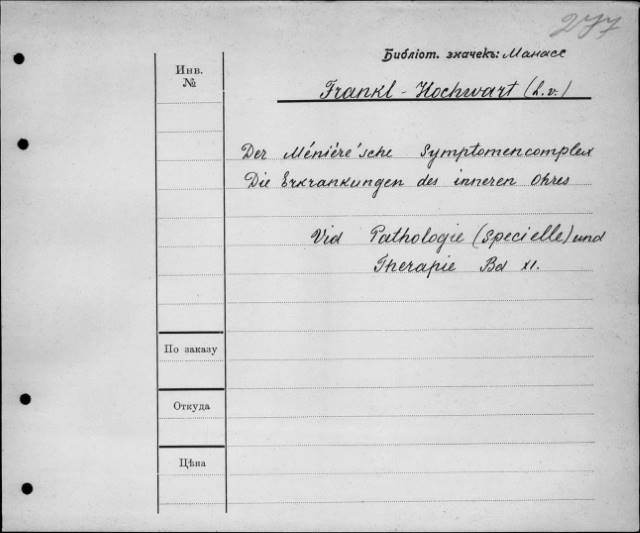 277
Библіот. значекъ: Манасс
Инв.
№
Frankl - Hochwart (L. v.)
Der Ménière'sche Symptomencomplex
Die Erkrankungen des inneren Ohres
Vid Pathologie (Specielle) und
Therapie Bd XI.
По заказу
Откуда
Цѣна